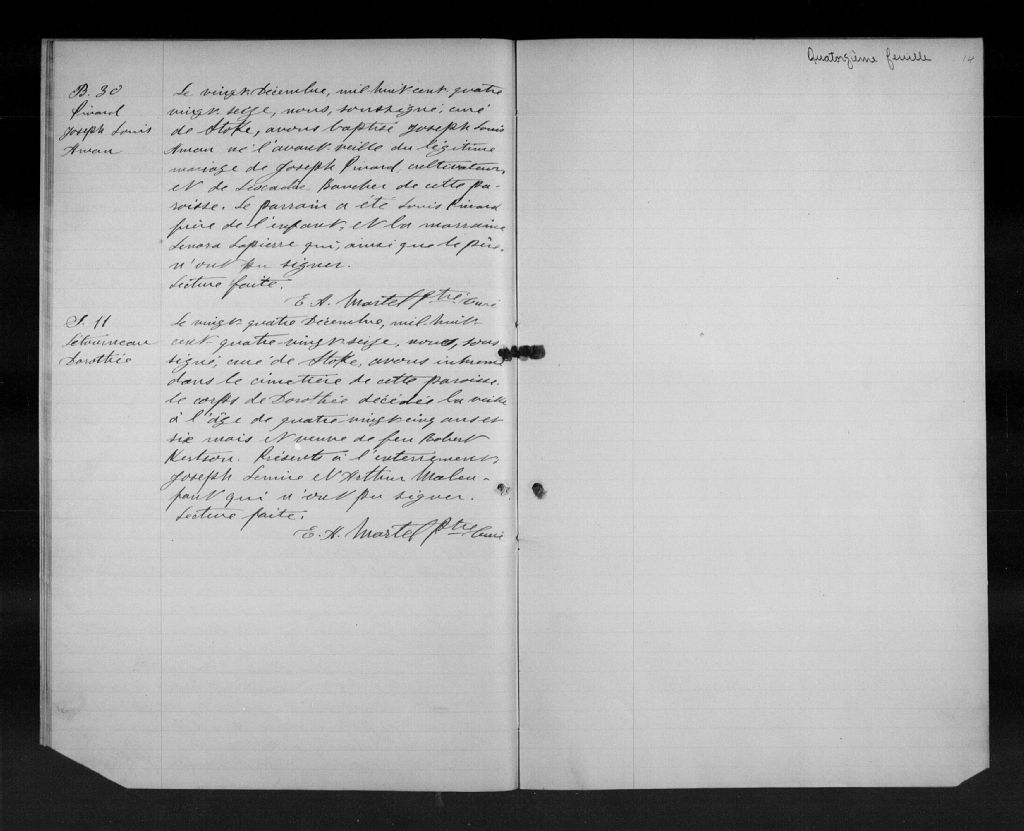 Quatorzième feuille 14
B. 30
Pinard
Joseph Louis
Le vingt Décembre, mil huit cent quatre
vingt seize, nous, soussigné, curé
de Stoke, avons baptisé Joseph Louis
né l'avant veille du légitime
mariage de Joseph Pinard, cultivateur,
et de Léocadie Boucher de cette pa-
roisse. Le parrain a été Louis Pinard
frère de l'enfant, et la marraine
Lenora Lapierre qui, ainsi que le père,
n'ont pu signer.
Lecture faite.
E. A. Martel Ptre Curé
S. 11
Létourneau
Dorothée
Le vingt quatre Décembre, mil huit
cent quatre-vingt seize, nous, sous
signé, curé de Stoke, avons inhumé
dans le cimetière de cette paroisse
le corps de Dorothée décédée la veille
à l'âge de quatre vingt cinq ans et
six mois et veuve de feu Robert
Présents à l'enterrement,
Joseph Lemire et Arthur Malen-
fant qui n'ont pu signer.
Lecture faite.
E. A. Martel Ptre Curé